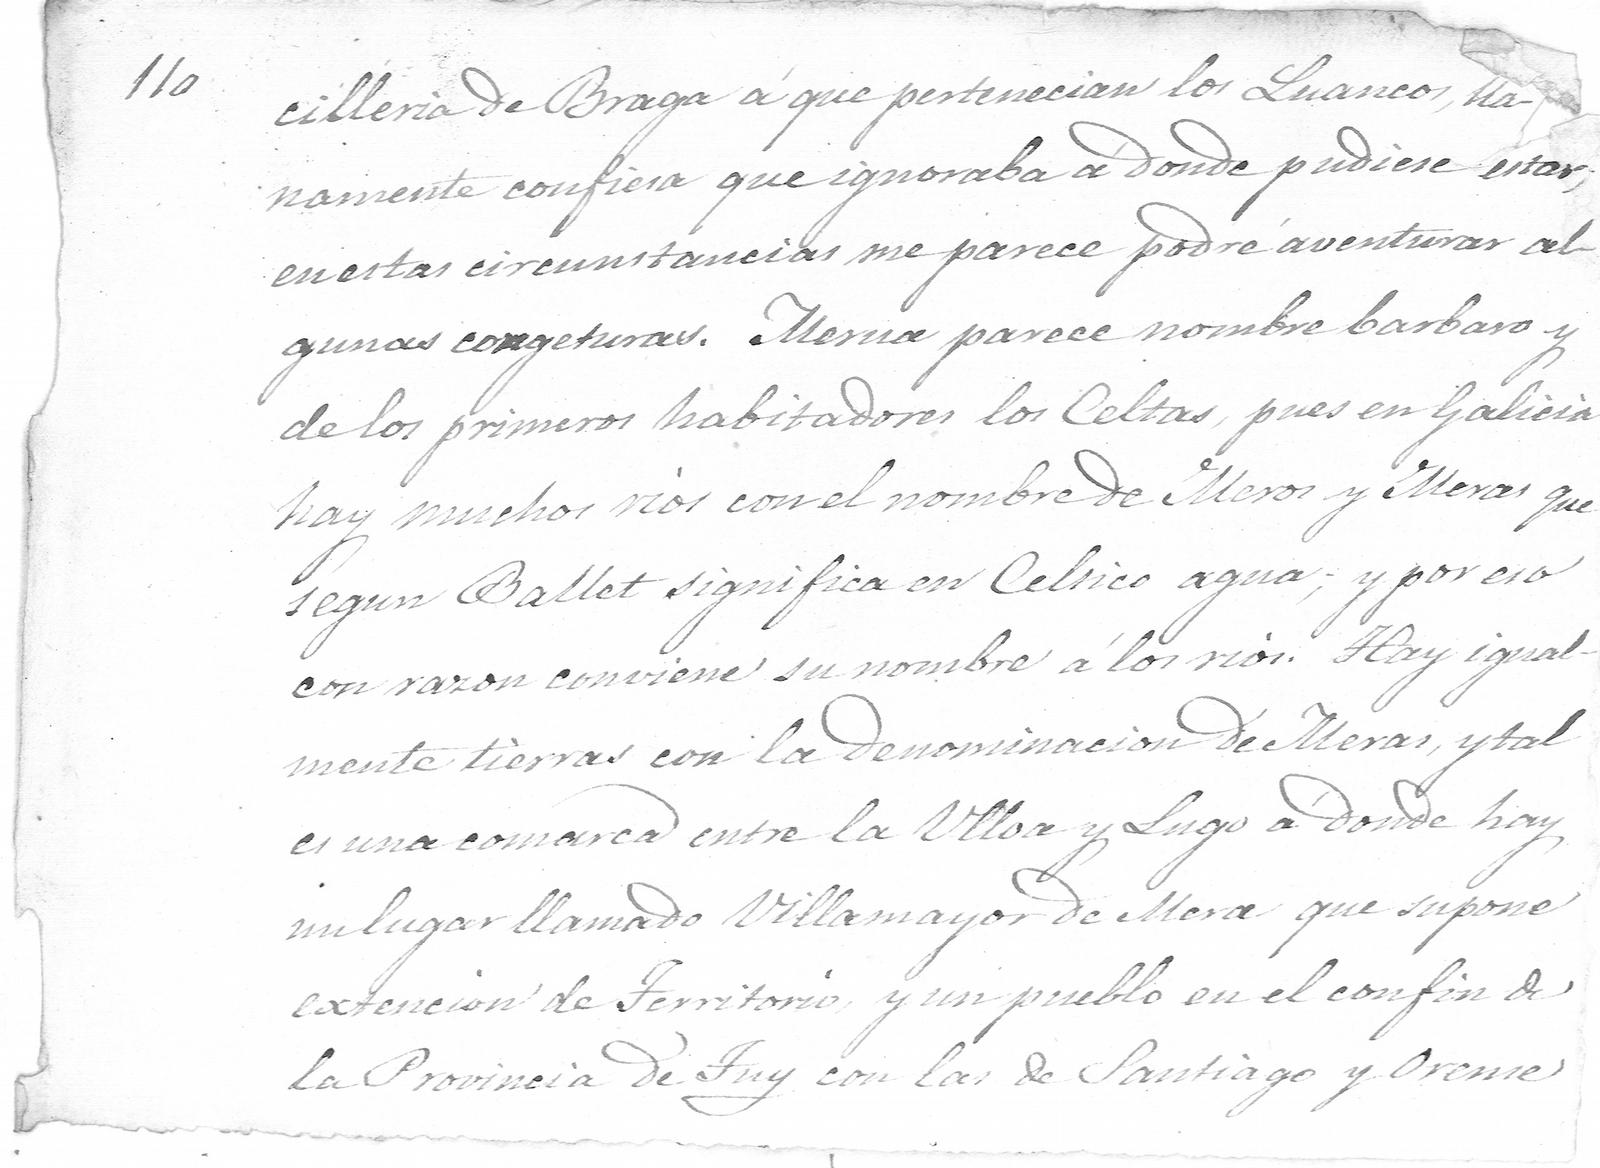 110
cilleria de Braga á que pertenecian los Luancos, lla-
namente confiesa que ignoraba á donde pudiese estar;
en estas circunstancias me parece podré aventurar al-
gunas congeturas. Merua parece nombre barbaro y
de los primeros habitadores los Celtas, pues en Galicia
hay muchos rios con el nombre de Meros y Meras que
segun Ballet significa en Celtico agua; y por eso
con razon conviene su nombre á los rios. Hay igual-
mente tierras con la denominacion de Meras, y tal
es una comarca entre la Ulloa y Lugo á donde hay
un lugar llamado Villamayor de Mera que supone
extencion de Territorio, y un pueblo en el confin de
la Provincia de Tuy con las de Santiago y Orense